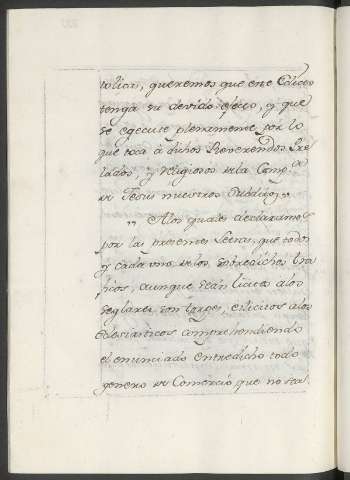 tolica, queremos que este Edicto
tenga su devido efecto, y que
se egecute plenamente por lo
que toca á dichos Reverendos Pre
lados, y religiosos de la Comp.a
de Jesus nuestros subditos,,
,, A los quales declaramos
por las presentes Letras, que todos
y cada uno de los sobredichos tra
ficos, aunque sean licitos a los
seglares, son torpes, e ilicitos a los
Eclesiasticos comprehendiendo
el enunciado entredicho todo
genero de Comercio que no sea